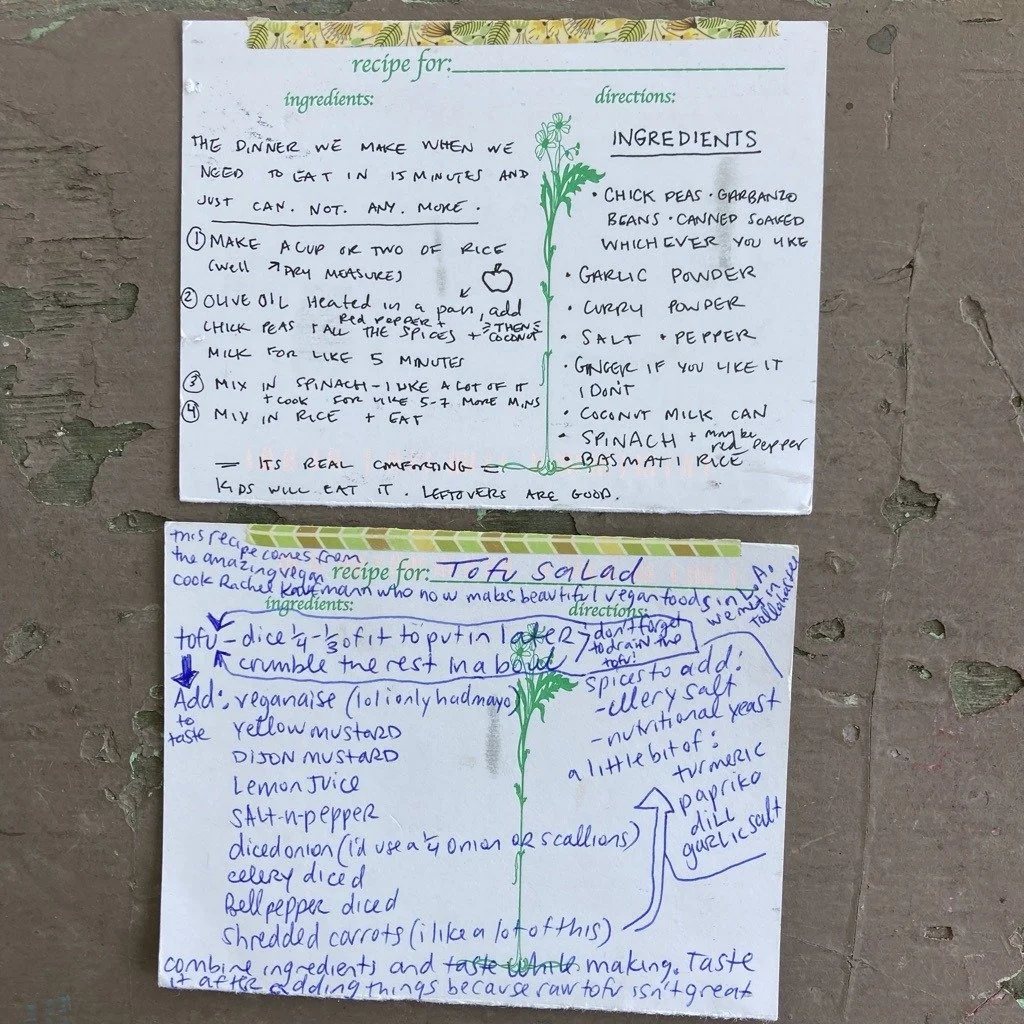 recipe for:
ingredients:
THE DINNER WE MAKE WHEN WE
NEED TO EAT IN 15 MINUTES AND
JUST CAN. NOT. ANY. MORE.
① MAKE A CUP OR TWO OF RICE
(well DRY MEASURE)
② OLIVE OIL Heated in a pan, add
Red PEPPER +
CHICK PEAS + ALL THE SPICES + THEN COCONUT
MILK FOR LIKE 5 MINUTES
③ MIX IN SPINACH - I LIKE A LOT OF IT
+ COOK FOR LIKE 5-7 MORE MINS
④ MIX IN RICE + EAT
= ITS REAL COMFORTING =
KIDS WILL EAT IT. LEFTOVERS ARE GOOD.
directions:
INGREDIENTS
• CHICK PEAS · GARBANZO
BEANS · CANNED SOAKED
WHICHEVER YOU LIKE
• GARLIC POWDER
• CURRY POWDER
• SALT + PEPPER
• GINGER IF YOU LIKE IT
I DON'T
• COCONUT MILK CAN
• SPINACH + maybe
red pepper
• BASMATI RICE
this recipe comes from
the amazing vegan
cook Rachel Kaufmann who now makes beautiful vegan foods in L.A.
we met in
Tallahassee
recipe for: Tofu Salad
ingredients:
directions:
tofu - dice 1/4 - 1/3 of it to put in later
crumble the rest in a bowl
don't forget
to drain the
tofu!
Add:
to
taste
veganaise (lol i only had mayo)
yellow mustard
DIJON MUSTARD
Lemon Juice
SALT-n-pepper
diced onion (i'd use a 1/4 onion OR scallions)
celery diced
Bell pepper diced
shredded carrots (i like a lot of this)
spices to add:
- cllery salt
- nutritional yeast
a little bit of:
turmeric
paprika
dill
garlic salt
combine ingredients and taste while making. Taste
it after adding things because raw tofu isn't great